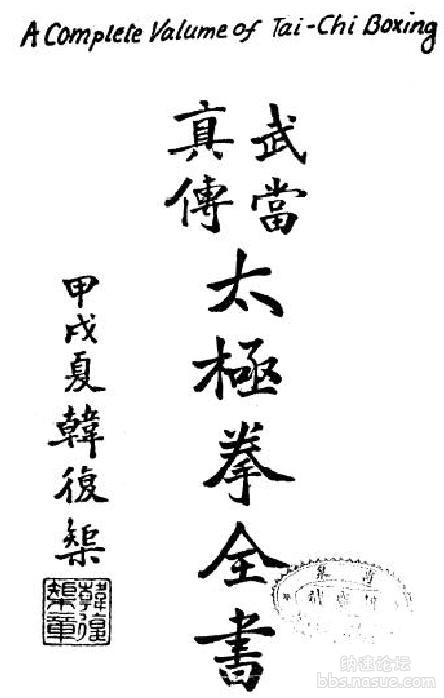 A Complete Valume of Tai-Chi Boxing
武當
真傳
太極拳全書
甲戌夏韓復榘
韓復榘章
纳速论坛
bbs.nasue.com